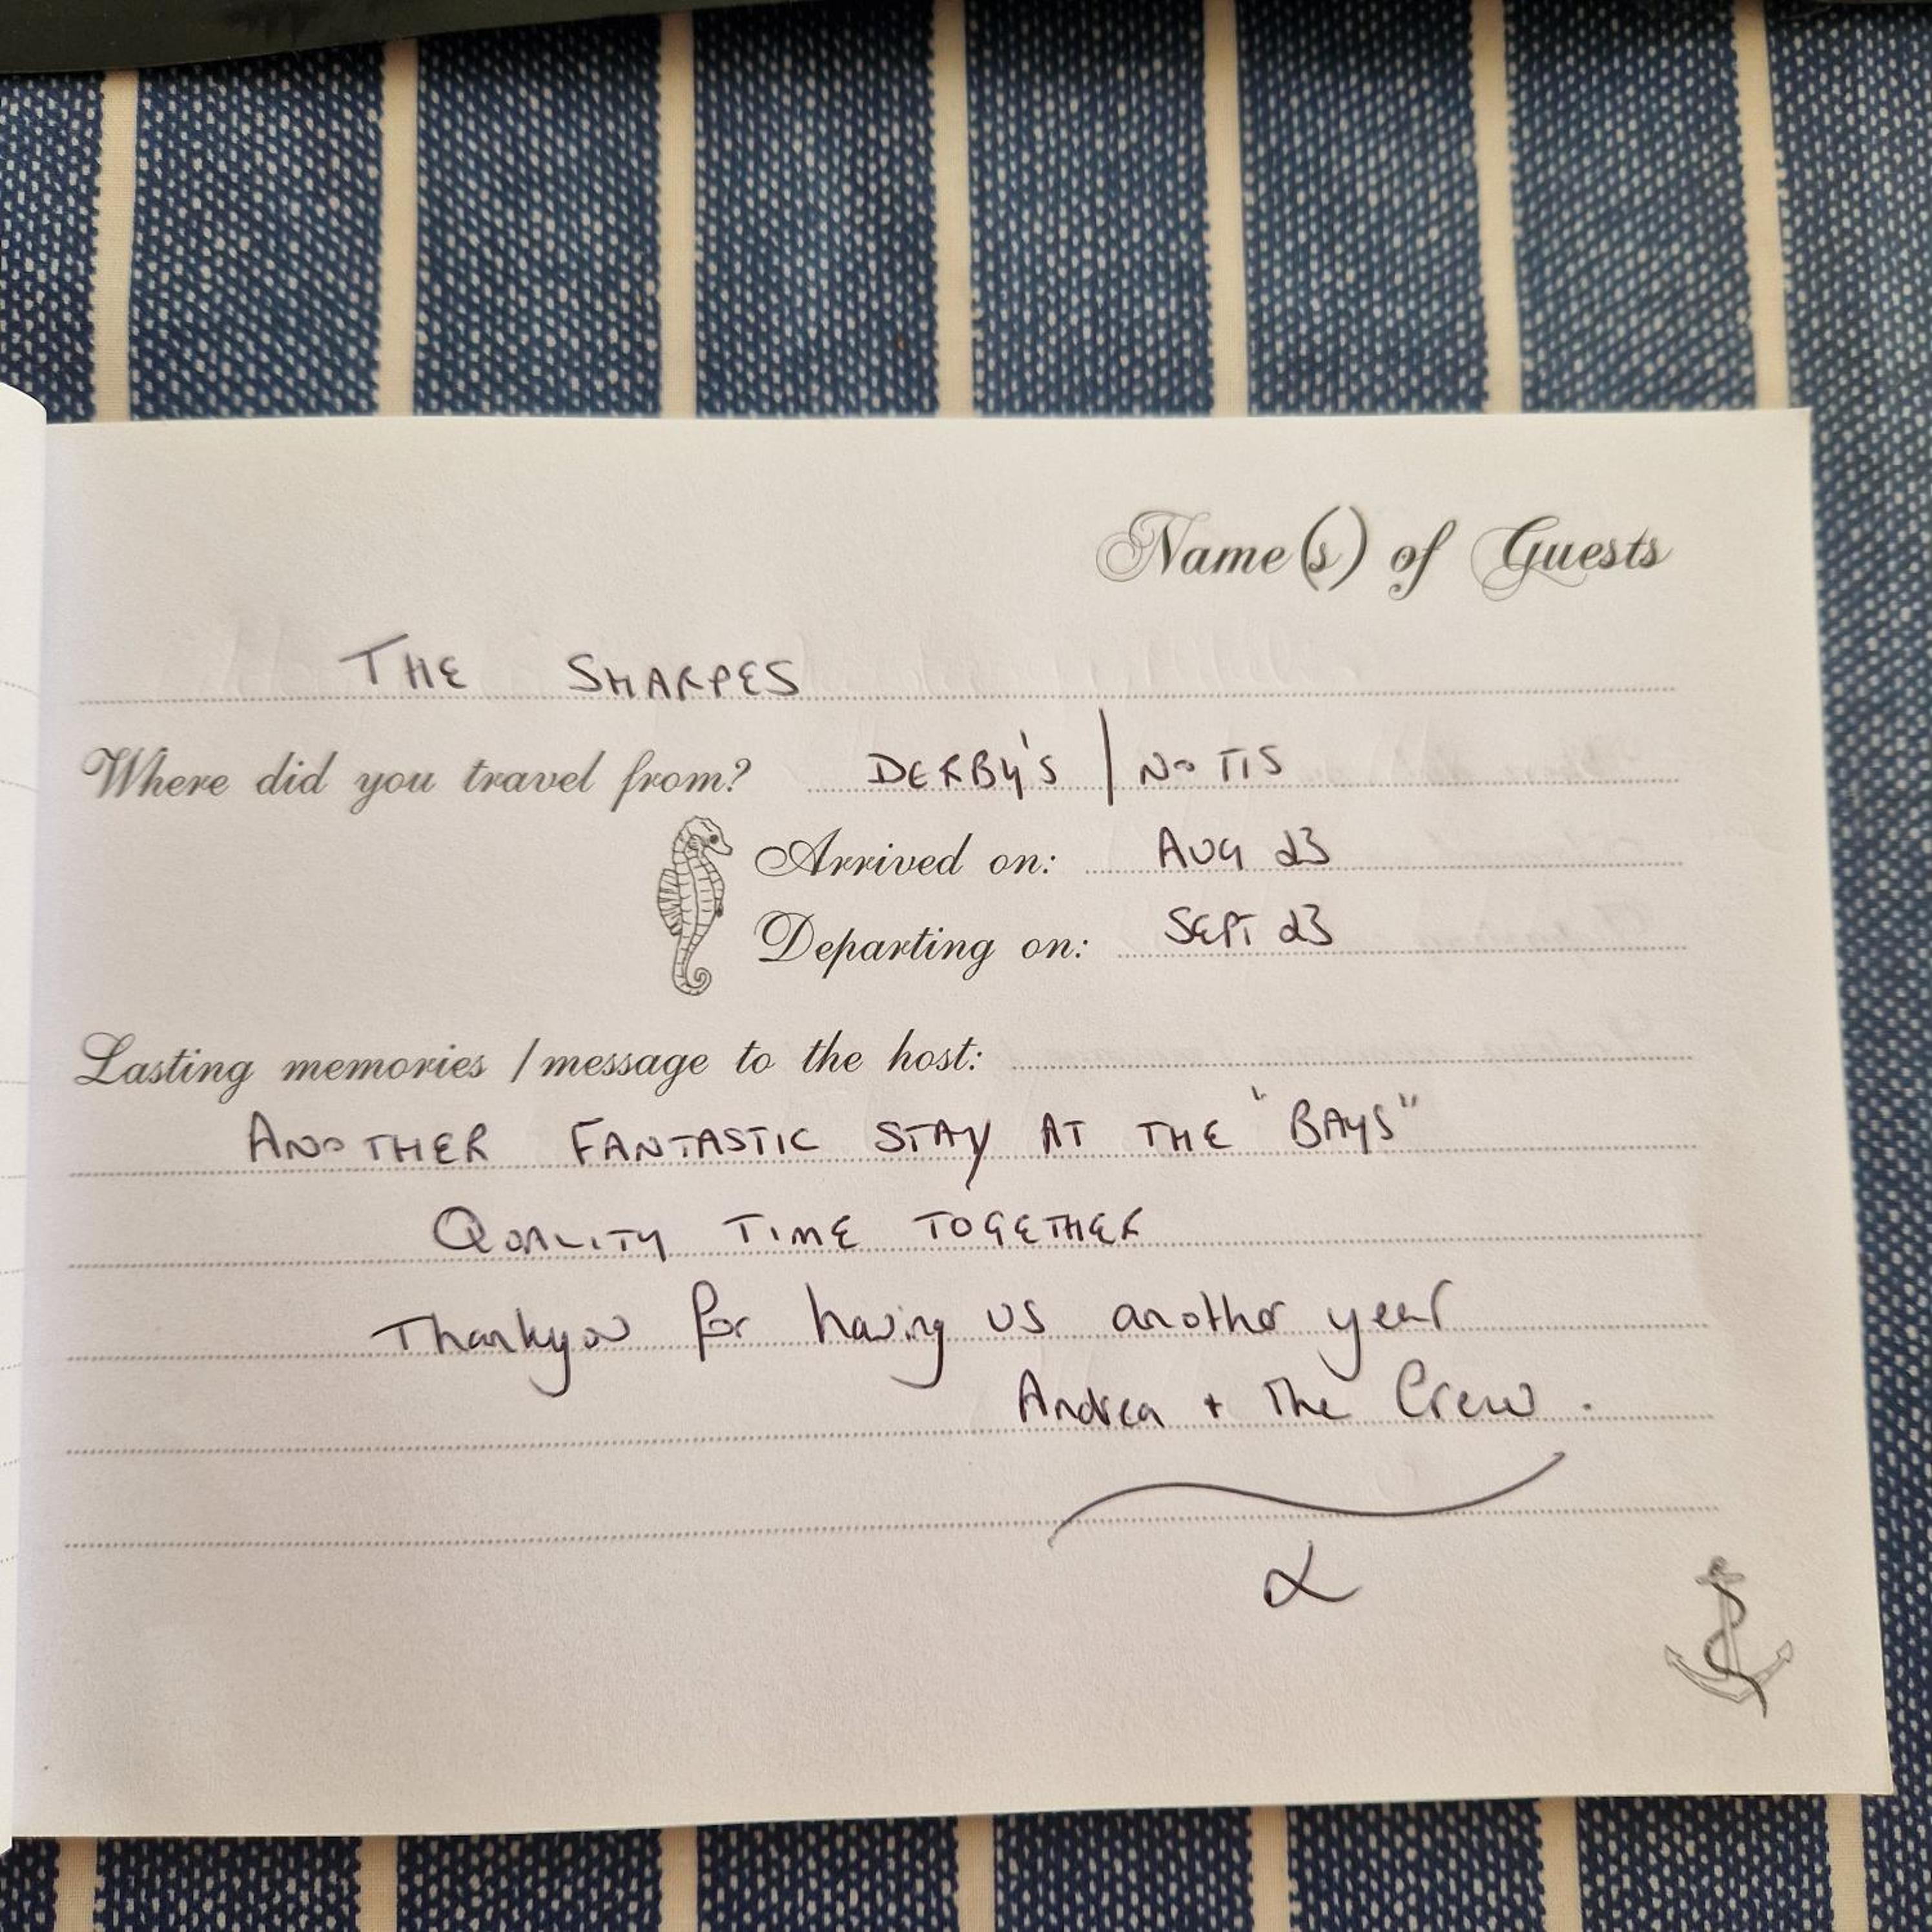 Name(s) of Guests
THE SHARPES
Where did you travel from? DERBY'S / NOTTS
Arrived on: AUG 23
Departing on: SEPT 23
Lasting memories / message to the host:
ANOTHER FANTASTIC STAY AT THE "BAYS"
QUALITY TIME TOGETHER
Thankyou for having us another year
Andrea + The Crew .
x